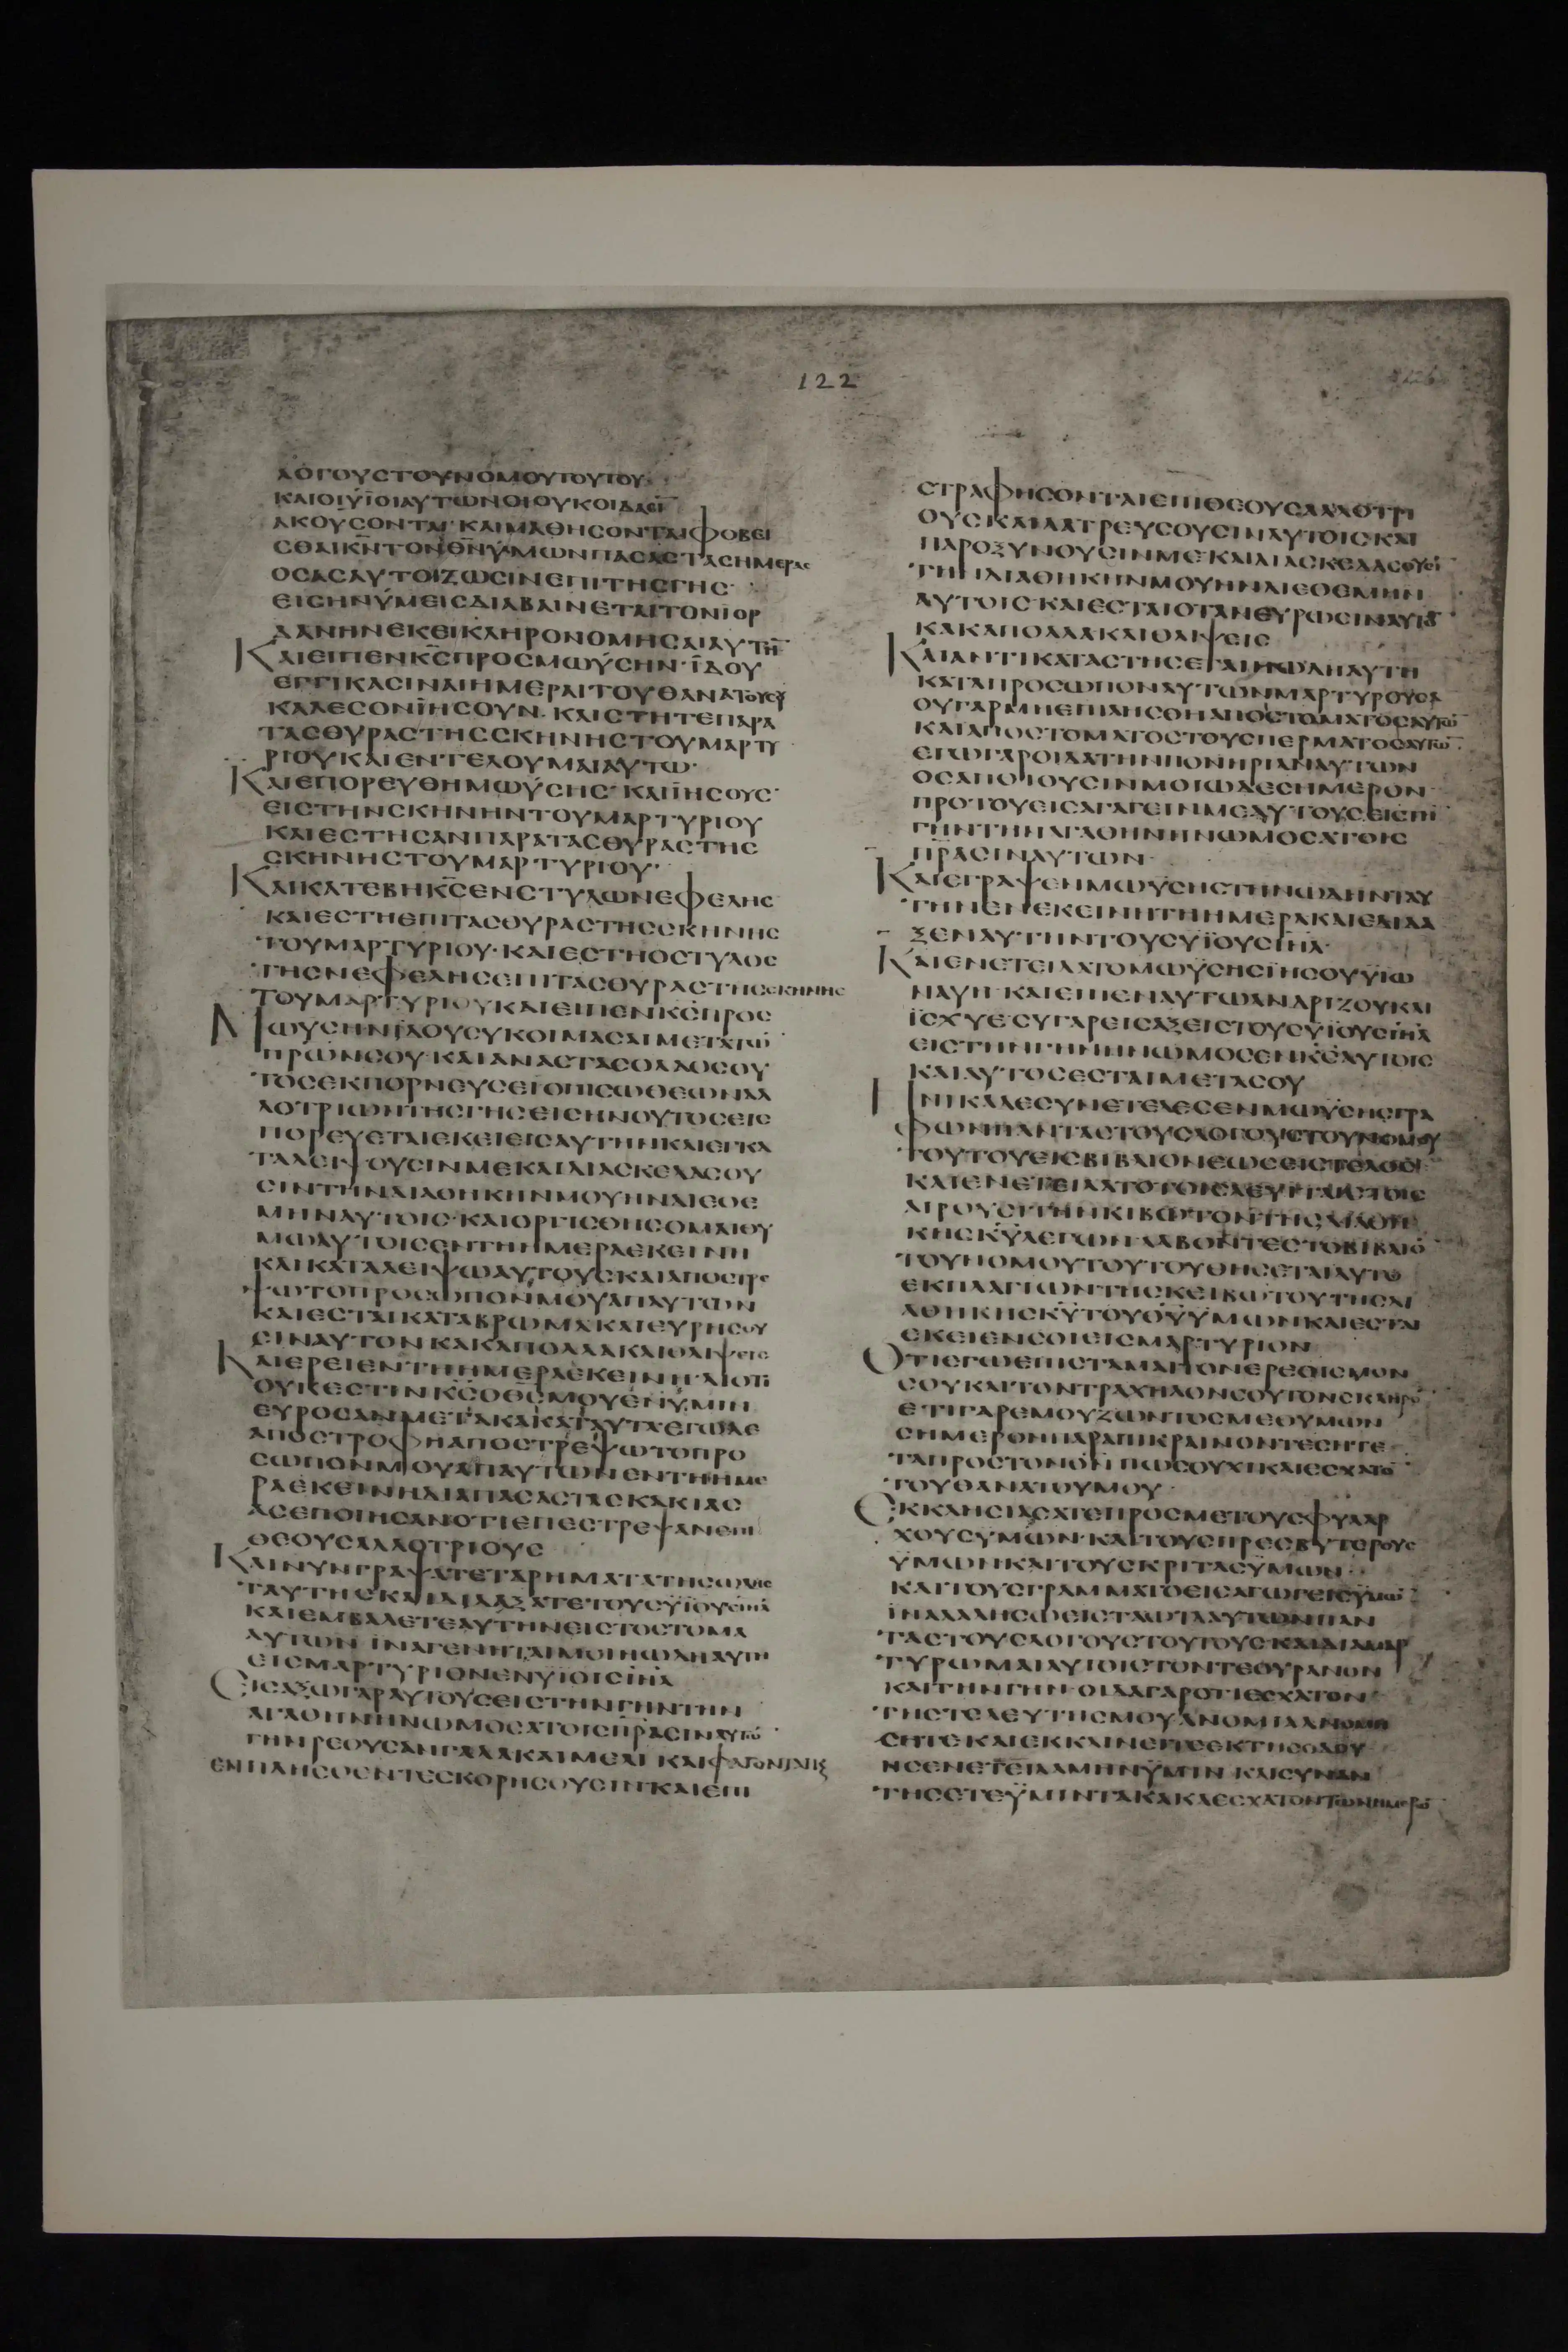 122
ΛΟΓΟΥΣΤΟΥΝΟΜΟΥΤΟΥΤΟΥ·
ΚΑΙΟΙΫΪΟΙΑΥΤΩΝΟΙΟΥΚΟΙΔΑΣΙ̅
ΑΚΟΥΣΟΝΤΑΙ·ΚΑΙΜΑΘΗΣΟΝΤΑΙΦΟΒΕΙ
ΣΘΑΙΚ̅Ν̅ΤΟΝΘ̅Ν̅ΫΜΩΝΠΑΣΑΣΤΑΣΗΜΕΡΑΣ
ΟΣΑΣΑΥΤΟΙΖΩΣΙΝΕΠΙΤΗΣΓΗΣ·
ΕΙΣΗΝΫΜΕΙΣΔΙΑΒΑΙΝΕΤΑΙΤΟΝΙΟΡ
ΔΑΝΗΝΕΚΕΙΚΛΗΡΟΝΟΜΗΣΑΙΑΥΤΗ̅
ΚΑΙΕΙΠΕΝΚ̅Σ̅ΠΡΟΣΜΩΫΣΗΝ·ΪΔΟΥ
ΕΓΓΙΚΑΣΙΝΑΙΗΜΕΡΑΙΤΟΥΘΑΝΑΤΟΥΣΟΥ
ΚΑΛΕΣΟΝΪΗΣΟΥΝ·ΚΑΙΣΤΗΤΕΠΑΡΑ
ΤΑΣΘΥΡΑΣΤΗΣΣΚΗΝΗΣΤΟΥΜΑΡΤΥ
ΡΙΟΥΚΑΙΕΝΤΕΛΟΥΜΑΙΑΥΤΩ·
ΚΑΙΕΠΟΡΕΥΘΗΜΩΫΣΗΣ·ΚΑΙΪΗΣΟΥΣ·
ΕΙΣΤΗΝΣΚΗΝΗΝΤΟΥΜΑΡΤΥΡΙΟΥ
ΚΑΙΕΣΤΗΣΑΝΠΑΡΑΤΑΣΘΥΡΑΣΤΗΣ
ΣΚΗΝΗΣΤΟΥΜΑΡΤΥΡΙΟΥ·
ΚΑΙΚΑΤΕΒΗΚ̅Σ̅ΕΝΣΤΥΛΩΝΕΦΕΛΗΣ
ΚΑΙΕΣΤΗΕΠΙΤΑΣΘΥΡΑΣΤΗΣΣΚΗΝΗΣ
ΤΟΥΜΑΡΤΥΡΙΟΥ·ΚΑΙΕΣΤΗΟΣΤΥΛΟΣ
ΤΗΣΝΕΦΕΛΗΣΕΠΙΤΑΣΘΥΡΑΣΤΗΣΣΚΗΝΗΣ
ΤΟΥΜΑΡΤΥΡΙΟΥΚΑΙΕΙΠΕΝΚ̅Σ̅ΠΡΟΣ
ΜΩΥΣΗΝΪΔΟΥΣΥΚΟΙΜΑΣΑΙΜΕΤΑΤΩ̅
ΠΡΩΝΣΟΥ·ΚΑΙΑΝΑΣΤΑΣΟΛΑΟΣΟΥ
ΤΟΣΕΚΠΟΡΝΕΥΣΕΙΟΠΙΣΩΘΕΩΝΑΛ
ΛΟΤΡΙΩΝΤΗΣΓΗΣΕΙΣΗΝΟΥΤΟΣΕΙΣ
ΠΟΡΕΥΕΤΑΙΕΚΕΙΕΙΣΑΥΤΗΝΚΑΙΕΓΚΑ
ΤΑΛΕΙΨΟΥΣΙΝΜΕΚΑΙΔΙΑΣΚΕΔΑΣΟΥ
ΣΙΝΤΗΝΔΙΑΘΗΚΗΝΜΟΥΗΝΔΙΕΘΕ
ΜΗΝΑΥΤΟΙΣ·ΚΑΙΟΡΓΙΣΘΗΣΟΜΑΙΘΥ
ΜΩΑΥΤΟΙΣΕΝΤΗΗΜΕΡΑΕΚΕΙΝΗ
ΚΑΙΚΑΤΑΛΕΙΨΩΑΥΤΟΥΣΚΑΙΑΠΟΣΤΡΕ
ΨΩΤΟΠΡΟΣΩΠΟΝΜΟΥΑΠΑΥΤΩΝ
ΚΑΙΕΣΤΑΙΚΑΤΑΒΡΩΜΑΚΑΙΕΥΡΗΣΟΥ
ΣΙΝΑΥΤΟΝΚΑΚΑΠΟΛΛΑΚΑΙΘΛΙΨΕΙΣ
ΚΑΙΕΡΕΙΕΝΤΗΗΜΕΡΑΕΚΕΙΝΗ·ΔΙΟΤΙ
ΟΥΚΕΣΤΙΝΚ̅Σ̅ΟΘ̅Σ̅ΜΟΥΕΝΫΜΙΝ
ΕΥΡΟΣΑΝΜΕΤΑΚΑΚΑΤΑΥΤΑΕΓΩΔΕ
ΑΠΟΣΤΡΟΦΗΑΠΟΣΤΡΕΨΩΤΟΠΡΟ
ΣΩΠΟΝΜΟΥΑΠΑΥΤΩΝΕΝΤΗΗΜΕ
ΡΑΕΚΕΙΝΗΔΙΑΠΑΣΑΣΤΑΣΚΑΚΙΑΣ
ΑΣΕΠΟΙΗΣΑΝΟΤΙΕΠΕΣΤΡΕΨΑΝΕΠΙ
ΘΕΟΥΣΑΛΛΟΤΡΙΟΥΣ
ΚΑΙΝΥΝΓΡΑΨΑΤΕΤΑΡΗΜΑΤΑΤΗΣΩΔΗΣ
ΤΑΥΤΗΣΚΑΙΔΙΔΑΞΑΤΕΤΟΥΣΥΪΟΥΣΙ̅Η̅Λ̅
ΚΑΙΕΜΒΑΛΕΤΕΑΥΤΗΝΕΙΣΤΟΣΤΟΜΑ
ΑΥΤΩΝΪΝΑΓΕΝΗΤΑΙΜΟΙΗΩΔΗΑΥΤΗ
ΕΙΣΜΑΡΤΥΡΙΟΝΕΝΥΪΟΙΣΙ̅Η̅Λ̅
ΕΙΣΑΞΩΓΑΡΑΥΤΟΥΣΕΙΣΤΗΝΓΗΝΤΗΝ
ΑΓΑΘΗΝΗΝΩΜΟΣΑΤΟΙΣΠ̅Ρ̅ΑΣΙΝΑΥΤΩ̅
ΓΗΝΡΕΟΥΣΑΝΓΑΛΑΚΑΙΜΕΛΙΚΑΙΦΑΓΟΝΤΑΙΚ
ΕΜΠΛΗΣΘΕΝΤΕΣΚΟΡΗΣΟΥΣΙΝΚΑΙΕΠΙ
ΣΤΡΑΦΗΣΟΝΤΑΙΕΠΙΘΕΟΥΣΑΛΛΟΤΡΙ
ΟΥΣΚΑΙΛΑΤΡΕΥΣΟΥΣΙΝΑΥΤΟΙΣΚΑΙ
ΠΑΡΟΞΥΝΟΥΣΙΝΜΕΚΑΙΔΙΑΣΚΕΔΑΣΟΥΣΙ̅
ΤΗΝΔΙΑΘΗΚΗΝΜΟΥΗΝΔΙΕΘΕΜΗΝ
ΑΥΤΟΙΣ·ΚΑΙΕΣΤΑΙΟΤΑΝΕΥΡΩΣΙΝΑΥΤΟ̅
ΚΑΚΑΠΟΛΛΑΚΑΙΘΛΙΨΕΙΣ
ΚΑΙΑΝΤΙΚΑΤΑΣΤΗΣΕΤΑΙΗΩΔΗΑΥΤΗ
ΚΑΤΑΠΡΟΣΩΠΟΝΑΥΤΩΝΜΑΡΤΥΡΟΥΣΑ
ΟΥΓΑΡΜΗΕΠΙΛΗΣΘΗΑΠΟΣΤΟΜΑΤΟΣΑΥΤΩ̅
ΚΑΙΑΠΟΣΤΟΜΑΤΟΣΤΟΥΣΠΕΡΜΑΤΟΣΑΥΤΩ̅
ΕΓΩΓΑΡΟΙΔΑΤΗΝΠΟΝΗΡΙΑΝΑΥΤΩΝ
ΟΣΑΠΟΙΟΥΣΙΝΜΟΙΩΔΕΣΗΜΕΡΟΝ
ΠΡΟΤΟΥΕΙΣΑΓΑΓΕΙΝΜΕΑΥΤΟΥΣΕΙΣΤΗ
ΓΗΝΤΗΝΑΓΑΘΗΝΗΝΩΜΟΣΑΤΟΙΣ
Π̅Ρ̅ΑΣΙΝΑΥΤΩΝ·
ΚΑΙΕΓΡΑΨΕΝΜΩΫΣΗΣΤΗΝΩΔΗΝΤΑΥ
ΤΗΝΕΝΕΚΕΙΝΗΤΗΗΜΕΡΑΚΑΙΕΔΙΔΑ
ΞΕΝΑΥΤΗΝΤΟΥΣΥΪΟΥΣΙ̅Η̅Λ̅·
ΚΑΙΕΝΕΤΕΙΛΑΤΟΜΩΫΣΗΣΪΗΣΟΥΫΙΩ
ΝΑΥΗ·ΚΑΙΕΙΠΕΝΑΥΤΩΑΝΔΡΙΖΟΥΚΑΙ
ΪΣΧΥΕ·ΣΥΓΑΡΕΙΣΑΞΕΙΣΤΟΥΣΥΪΟΥΣΙ̅Η̅Λ̅
ΕΙΣΤΗΝΓΗΝΗΝΩΜΟΣΕΝΚ̅Σ̅ΑΥΤΟΙΣ
ΚΑΙΑΥΤΟΣΕΣΤΑΙΜΕΤΑΣΟΥ
ΗΝΙΚΑΔΕΣΥΝΕΤΕΛΕΣΕΝΜΩΫΣΗΣΓΡΑ
ΦΩΝΠΑΝΤΑΣΤΟΥΣΛΟΓΟΥΣΤΟΥΝΟΜΟΥ
ΤΟΥΤΟΥΕΙΣΒΙΒΛΙΟΝΕΩΣΕΙΣΤΕΛΟΣ
ΚΑΙΕΝΕΤΕΙΛΑΤΟΤΟΙΣΛΕΥΙΤΑΙΣΤΟΙΣ
ΑΙΡΟΥΣΙΤΗΝΚΙΒΩΤΟΝΤΗΣΔΙΑΘΗ
ΚΗΣΚ̅Υ̅ΛΕΓΩΝΛΑΒΟΝΤΕΣΤΟΒΙΒΛΙΟ̅
ΤΟΥΝΟΜΟΥΤΟΥΤΟΥΘΗΣΕΤΑΙΑΥΤΟ
ΕΚΠΛΑΓΙΩΝΤΗΣΚΕΙΒΩΤΟΥΤΗΣΔΙ
ΑΘΗΚΗΣΚ̅Υ̅ΤΟΥΘ̅Υ̅ΫΜΩΝΚΑΙΕΣΤΑΙ
ΕΚΕΙΕΝΣΟΙΕΙΣΜΑΡΤΥΡΙΟΝ
ΟΤΙΕΓΩΕΠΙΣΤΑΜΑΙΤΟΝΕΡΕΘΙΣΜΟΝ
ΣΟΥΚΑΙΤΟΝΤΡΑΧΗΛΟΝΣΟΥΤΟΝΣΚΛΗΡΟ̅
ΕΤΙΓΑΡΕΜΟΥΖΩΝΤΟΣΜΕΘΥΜΩΝ
ΣΗΜΕΡΟΝΠΑΡΑΠΙΚΡΑΙΝΟΝΤΕΣΗΤΕ
ΤΑΠΡΟΣΤΟΝΘ̅Ν̅ΠΩΣΟΥΧΙΚΑΙΕΣΧΑΤΟ̅
ΤΟΥΘΑΝΑΤΟΥΜΟΥ·
ΕΚΚΛΗΣΙΑΣΑΤΕΠΡΟΣΜΕΤΟΥΣΦΥΛΑΡ
ΧΟΥΣΥΜΩΝ·ΚΑΙΤΟΥΣΠΡΕΣΒΥΤΕΡΟΥΣ
ΫΜΩΝΚΑΙΤΟΥΣΚΡΙΤΑΣΫΜΩΝ·
ΚΑΙΤΟΥΣΓΡΑΜΜΑΤΟΕΙΣΑΓΩΓΕΙΣΫΜΩ̅
ΪΝΑΛΑΛΗΣΩΕΙΣΤΑΩΤΑΑΥΤΩΝΠΑΝ
ΤΑΣΤΟΥΣΛΟΓΟΥΣΤΟΥΤΟΥΣΚΑΙΔΙΑΜΑΡ
ΤΥΡΩΜΑΙΑΥΤΟΙΣΤΟΝΤΕΟΥΡΑΝΟΝ
ΚΑΙΤΗΝΓΗΝ·ΟΙΔΑΓΑΡΟΤΙΕΣΧΑΤΟΝ
ΤΗΣΤΕΛΕΥΤΗΣΜΟΥΑΝΟΜΙΑΑΝΟΜΗ
ΣΗΤΕΚΑΙΕΚΚΛΙΝΕΙΤΕΕΚΤΗΣΟΔΟΥ
ΗΣΕΝΕΤΕΙΛΑΜΗΝΫΜΙΝΚΑΙΣΥΝΑΝ
ΤΗΣΕΤΕΫΜΙΝΤΑΚΑΚΑΕΣΧΑΤΟΝΤΩΝΗΜΕΡΩ̅